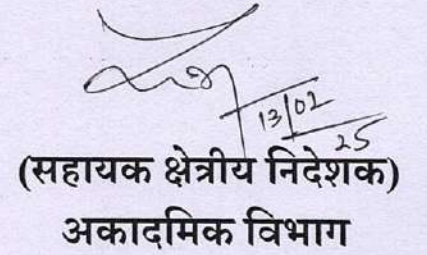 13/02
25
(सहायक क्षेत्रीय निदेशक)
अकादमिक विभाग